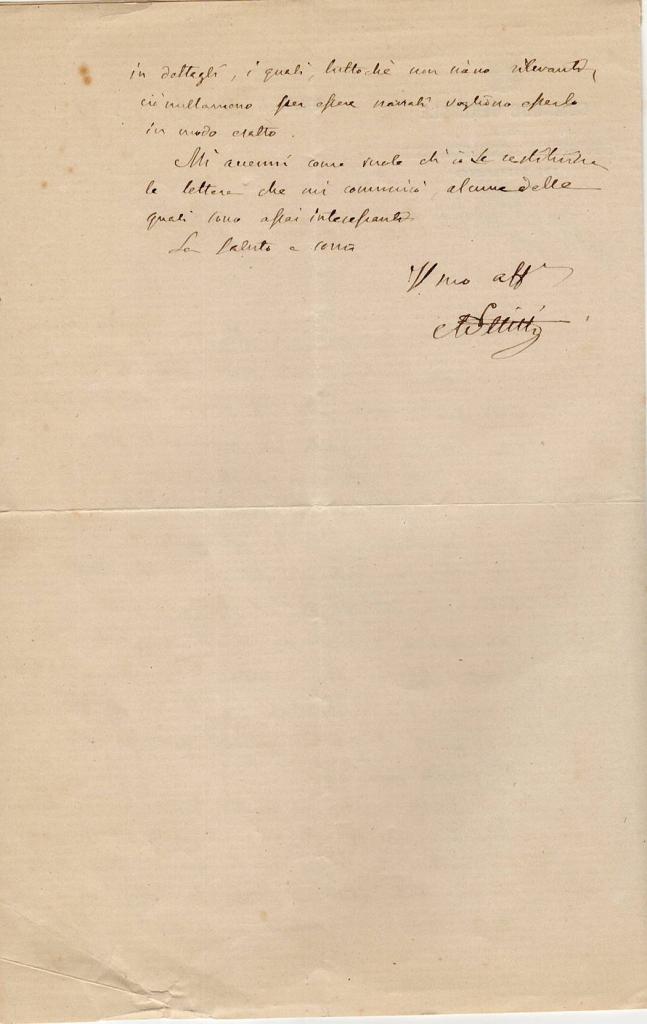 in dettagli, i quali, tuttochè non siano rilevanti,
ciò nullameno per essere narrati vogliono esserlo
in modo esatto.
Mi accenni come vuole ch'io Le restituisca
le lettere che mi comunicò, alcune delle
quali sono assai interessanti.
La saluto e sono
Il suo aff